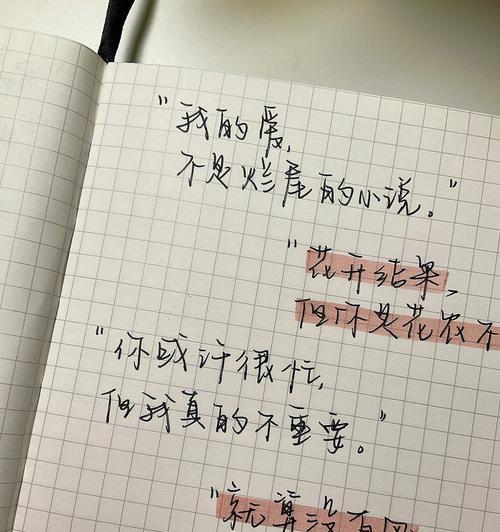 "我的爱,
不是烂尾的小说。"
"花开结果,
但你是花农不
"你或许很忙,
但我真的不重要。"
"就算没有风